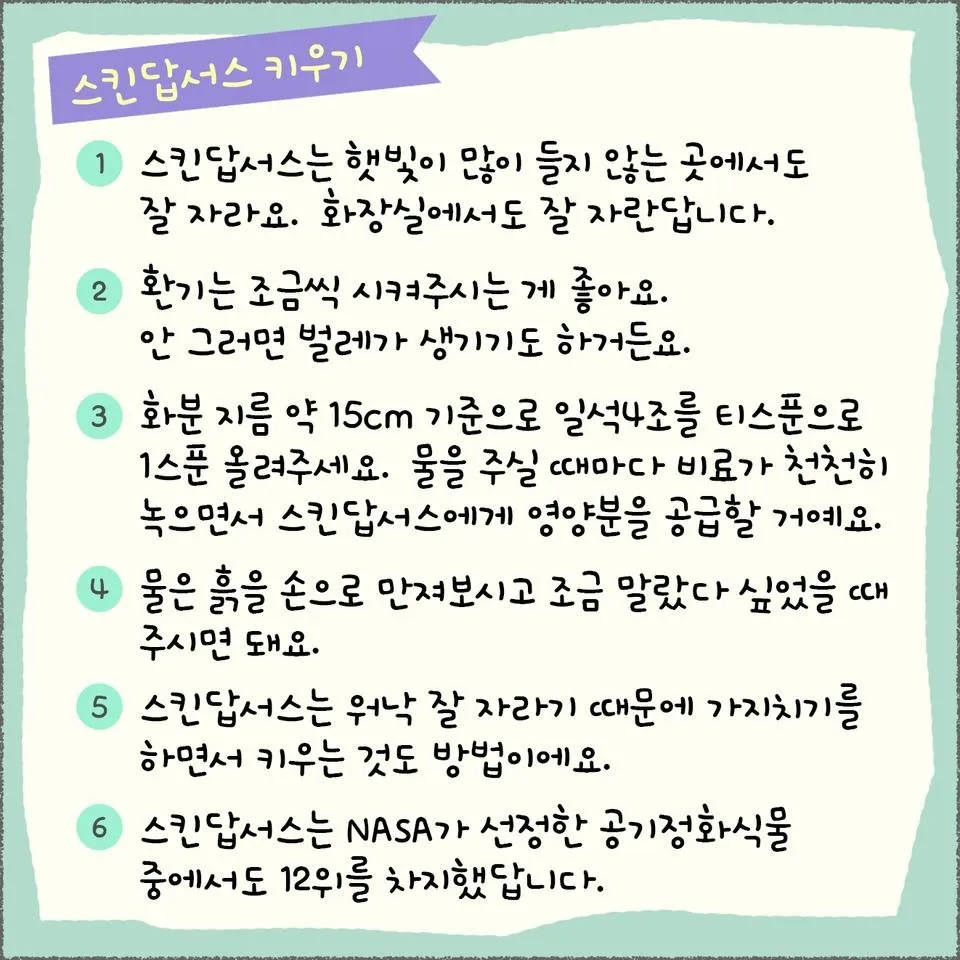 스킨답서스 키우기
1 스킨답서스는 햇빛이 많이 들지 않는 곳에서도
잘 자라요. 화장실에서도 잘 자란답니다.
2 환기는 조금씩 시켜주시는 게 좋아요.
안 그러면 벌레가 생기기도 하거든요.
3 화분 지름 약 15cm 기준으로 일석4조를 티스푼으로
1스푼 올려주세요. 물을 주실 때마다 비료가 천천히
녹으면서 스킨답서스에게 영양분을 공급할 거예요.
4 물은 흙을 손으로 만져보시고 조금 말랐다 싶었을 때
주시면 돼요.
5 스킨답서스는 워낙 잘 자라기 때문에 가지치기를
하면서 키우는 것도 방법이에요.
6 스킨답서스는 NASA가 선정한 공기정화식물
중에서도 12위를 차지했답니다.